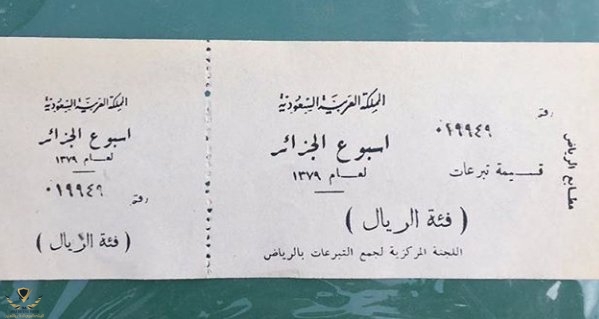 المملكة العربية السعودية
اسبوع الجزائر
لعام ١٣٧٩
رقم
٠١٩٩٤٩
قسيمة تبرعات
( فئة الريال )
اللجنة المركزية لجمع التبرعات بالرياض
مطابع الرياض
المملكة العربية السعودية
اسبوع الجزائر
لعام ١٣٧٩
رقم ٠١٩٩٤٩
( فئة الريال )